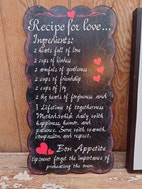 Recipe for love...
Ingredients:
2 hearts full of love
2 cups of kisses
2 armfuls of gentleness
4 cups of friendship
2 cups of joy
2 big hearts of forgiveness and
1 Lifetime of togetherness
Method: stir daily with
happiness, humor, and
patience. Serve with warmth,
compassion and respect.
Bon Appetite
never forget the importance of
preheating the oven.